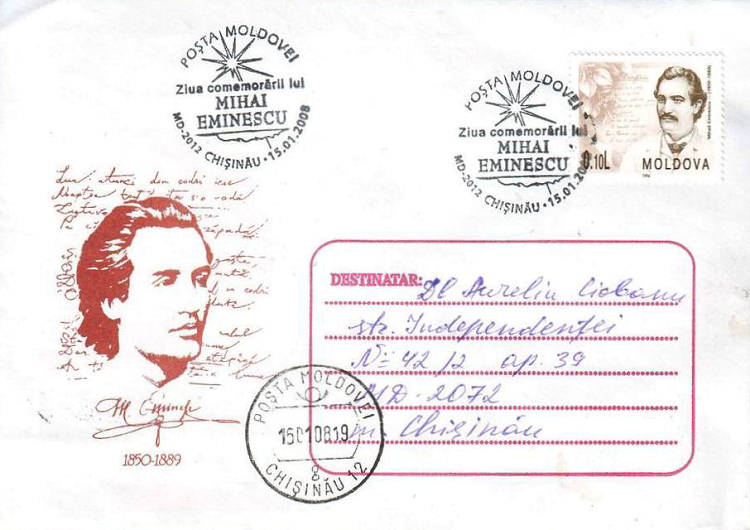 POȘTA MOLDOVEI
Ziua comemorării lui
MIHAI
EMINESCU
MD-2012 CHIȘINĂU • 15.01.2008
POȘTA MOLDOVEI
Ziua comemorării lui
MIHAI
EMINESCU
MD-2012 CHIȘINĂU • 15.01.200
0.10L MOLDOVA
Luna atunci din codri iese
Noaptea
M Eminescu
1850-1889
DESTINATAR: Dl Aureliu Ciobanu
str. Independenței
Nº 42/2 ap. 39
MD-2072
m. Chișinău
POȘTA MOLDOVEI
15010819
8
CHIȘINĂU 12